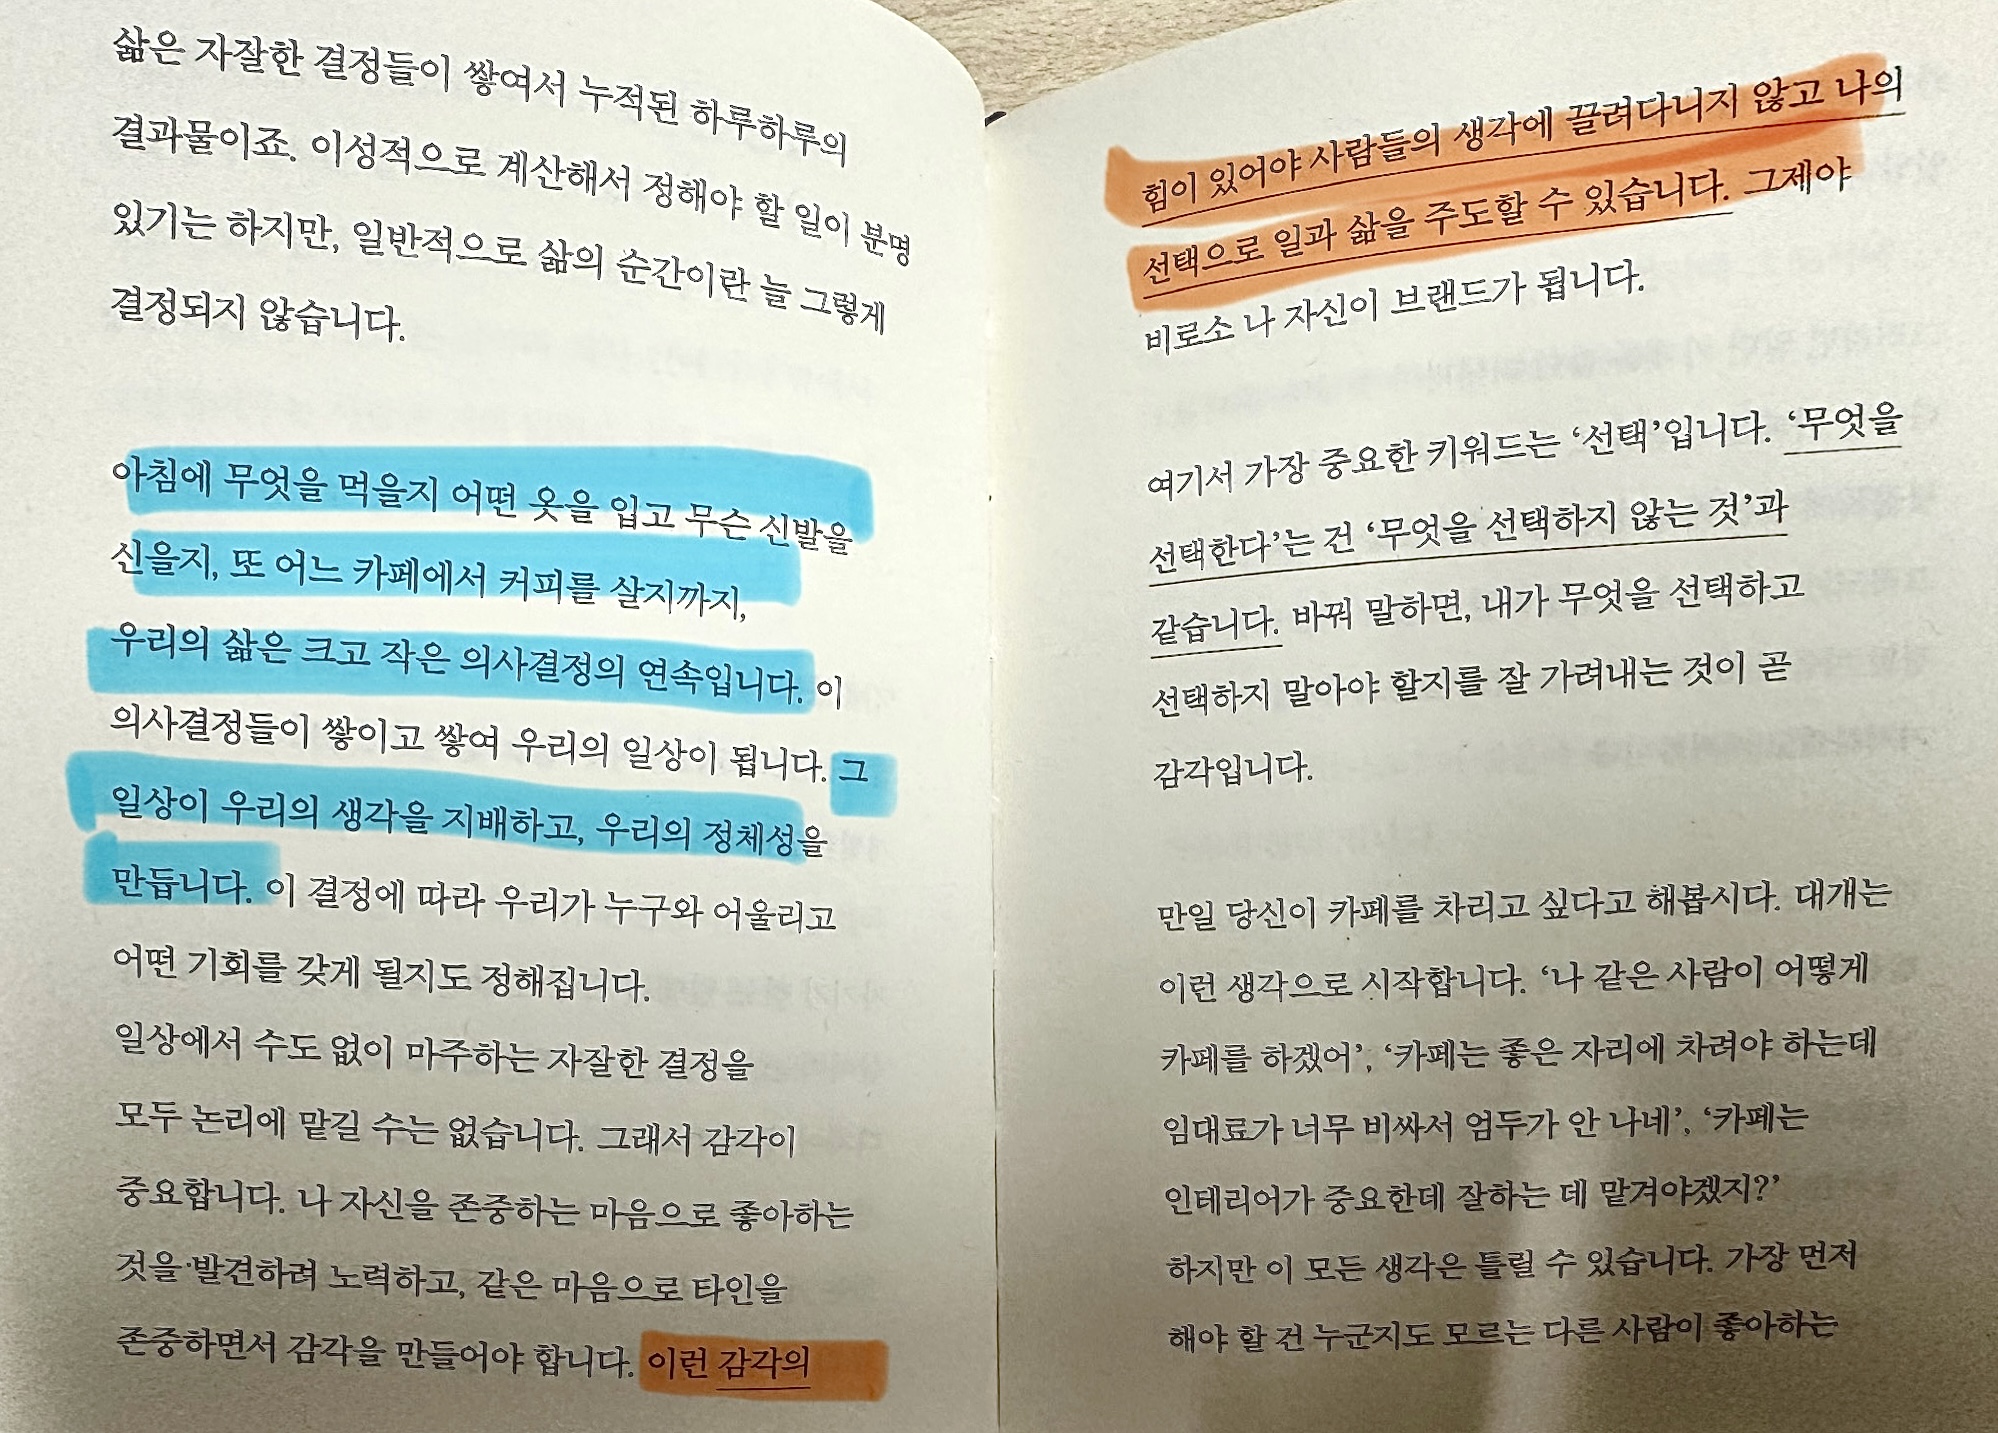 삶은 자잘한 결정들이 쌓여서 누적된 하루하루의
결과물이죠. 이성적으로 계산해서 정해야 할 일이 분명
있기는 하지만, 일반적으로 삶의 순간이란 늘 그렇게
결정되지 않습니다.
아침에 무엇을 먹을지 어떤 옷을 입고 무슨 신발을
신을지, 또 어느 카페에서 커피를 살지까지,
우리의 삶은 크고 작은 의사결정의 연속입니다. 이
의사결정들이 쌓이고 쌓여 우리의 일상이 됩니다. 그
일상이 우리의 생각을 지배하고, 우리의 정체성을
만듭니다. 이 결정에 따라 우리가 누구와 어울리고
어떤 기회를 갖게 될지도 정해집니다.
일상에서 수도 없이 마주하는 자잘한 결정을
모두 논리에 맡길 수는 없습니다. 그래서 감각이
중요합니다. 나 자신을 존중하는 마음으로 좋아하는
것을 발견하려 노력하고, 같은 마음으로 타인을
존중하면서 감각을 만들어야 합니다. 이런 감각의
힘이 있어야 사람들의 생각에 끌려다니지 않고 나의
선택으로 일과 삶을 주도할 수 있습니다. 그제야
비로소 나 자신이 브랜드가 됩니다.
여기서 가장 중요한 키워드는 ‘선택’입니다. ‘무엇을
선택한다’는 건 ‘무엇을 선택하지 않는 것’과
같습니다. 바꿔 말하면, 내가 무엇을 선택하고
선택하지 말아야 할지를 잘 가려내는 것이 곧
감각입니다.
만일 당신이 카페를 차리고 싶다고 해봅시다. 대개는
이런 생각으로 시작합니다. ‘나 같은 사람이 어떻게
카페를 하겠어’, ‘카페는 좋은 자리에 차려야 하는데
임대료가 너무 비싸서 엄두가 안 나네’, ‘카페는
인테리어가 중요한데 잘하는 데 맡겨야겠지?’
하지만 이 모든 생각은 틀릴 수 있습니다. 가장 먼저
해야 할 건 누군지도 모르는 다른 사람이 좋아하는